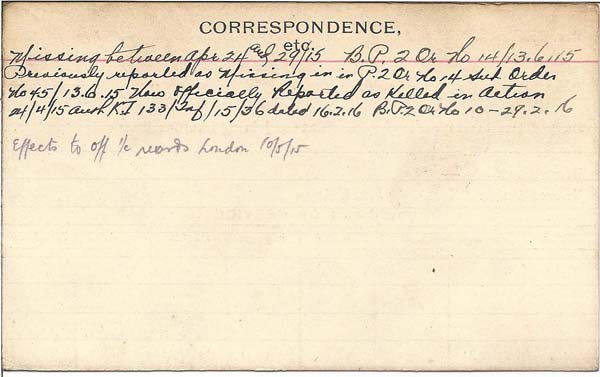 CORRESPONDENCE,
etc.
Missing between Apr 24 and 29/15 B.P. 2 Or No 14/13.6.15
Previously reported as Missing in in P. 2 Or No 14 sub Order
No 45/13.6.15 Now officially Reported as Killed in Action
24/4/15 auth K.I 133/Inf/15/36 dated 16.2.16 B.P.2 Or No 10-29.2.16
Effects to off i/c records London 10/5/15